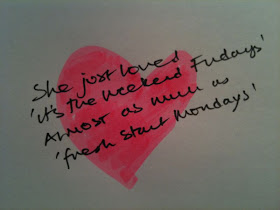 She just loved
'it's the weekend Fridays'
Almost as much as
'fresh start Mondays'